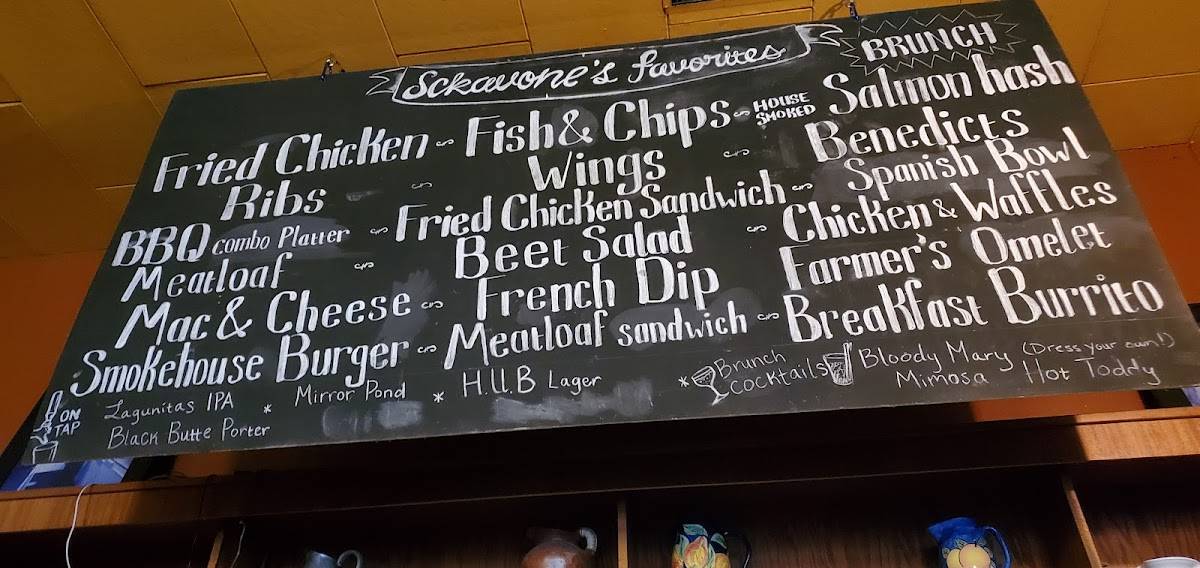 Sckavone's favorites
BRUNCH
Fried Chicken ~ Fish & Chips ~ HOUSE SMOKED Salmon hash
Ribs ~ Wings ~ Benedicts
BBQ combo Platter ~ Fried Chicken Sandwich ~ Spanish Bowl
Meatloaf ~ Beet Salad ~ Chicken & Waffles
Mac & Cheese ~ French Dip Farmer's Omelet
Smokehouse Burger ~ Meatloaf sandwich ~ Breakfast Burrito
ON TAP
Lagunitas IPA * Mirror Pond * H.U.B Lager
Black Butte Porter
* Brunch Cocktails
Bloody Mary (Dress your own!)
Mimosa Hot Toddy